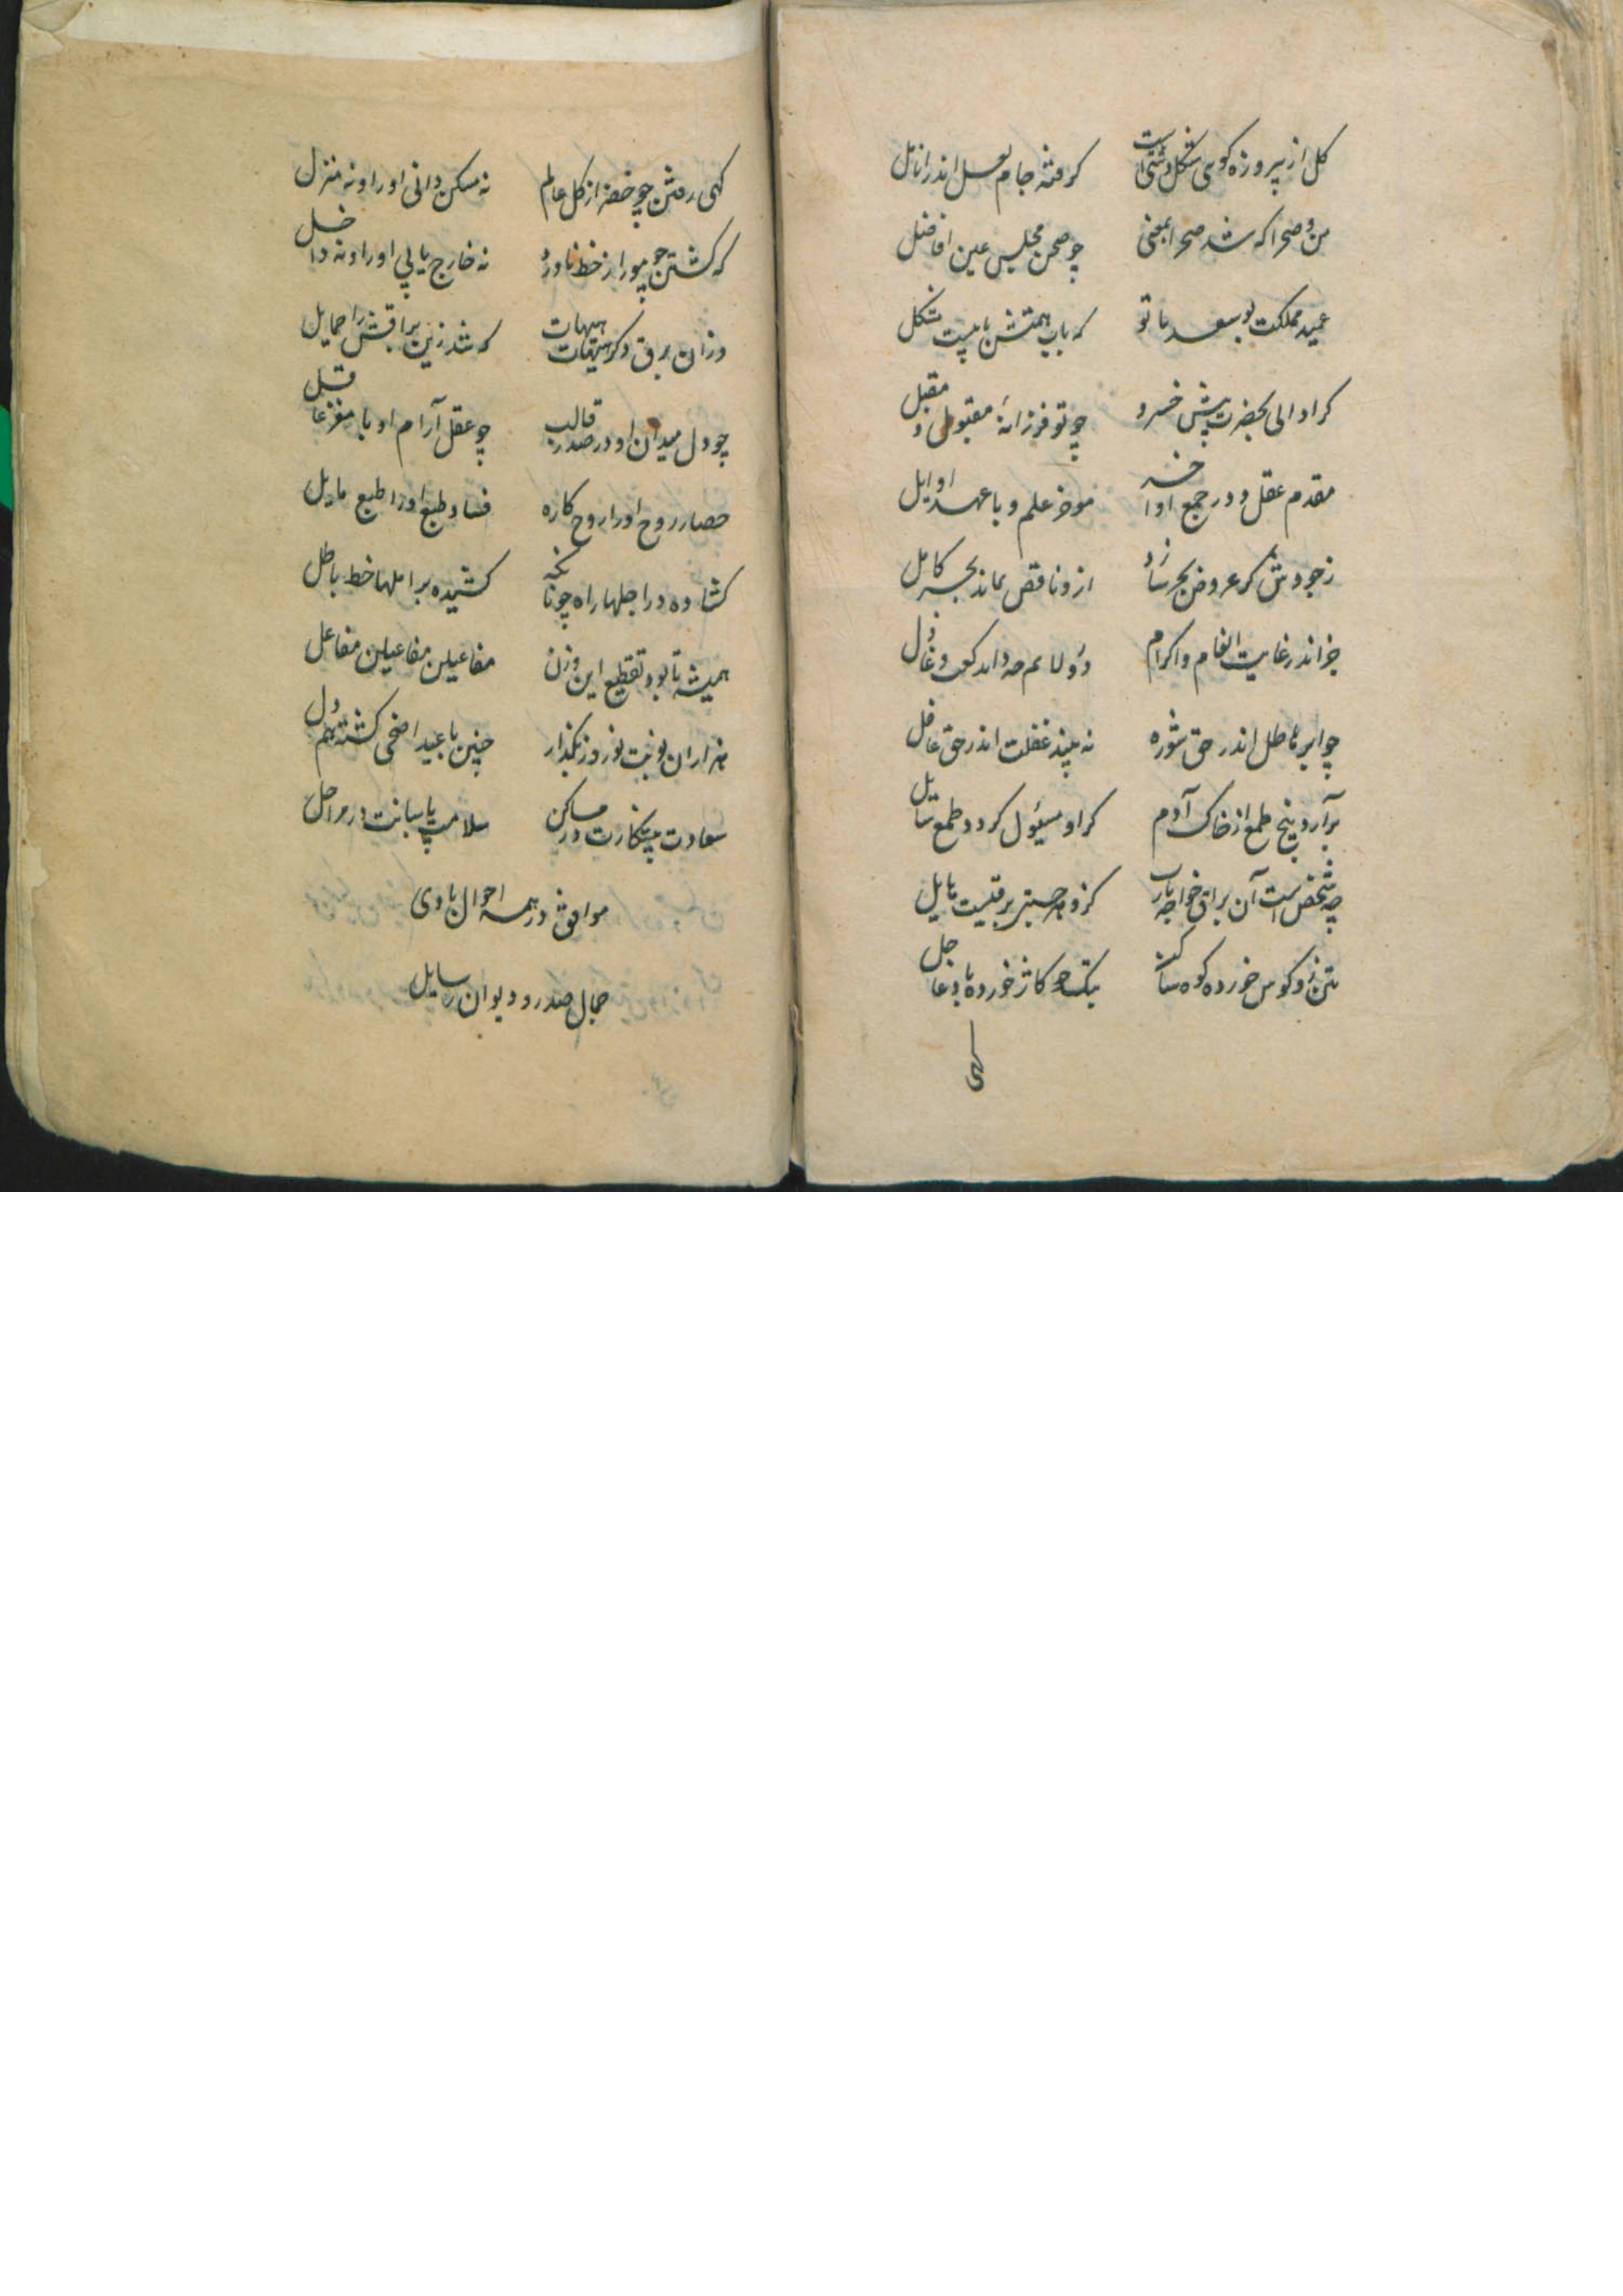 کل از پیروزه کوی شکل دستی است کرفته جام لعل اندر انامل
من و صحرا که شد صحرا بمعنی چو صحن مجلس عین افاضل
عمید مملکت بوسعد با تو که باب همتش بابیست مشکل
کرا والی بحضرت پیش خسرو چو تو فرزانهٔ مقبول و مقبل
مقدم عقل و در جمع اواخر موخر علم و با عهد اوایل
ز جودش کر عروض بحر ازو ناقص نماند بحر کامل
جز اندر غایت انعام و اکرام
چو ابر باطل اندر حق شوره نه بیند غفلت اندر حق غافل
برآرد بیخ طمع از خاک آدم کر او مسئول کردد طمع سایل
چه شخص است آن براق خواجه یارب کزو هر جستن برقیست مایل
بتن زو کوس خورده کوه ساکن بتک زو کاز خورده باد عاجل
کهی
کهی رفتن چو خضر از کل عالم نه مسکن دانی او را و نه منزل
که کشتن چو مور از خط ناورد نه خارج یابی او را و نه داخل
وزان برق دکر هیهات هیهات که شد زین براقش را حمایل
چو دل میدان او در صدر قالب چو عقل آرام او با مغز عاقل
حصار روح او را روح کاره فساد طبع او را طبع مایل
کشاده در اجلها راه چونانکه کشیده بر املها خط باطل
همیشه تا بود تقطیع این وزن مفاعیلن مفاعیلن مفاعل
هزاران نوبت نوروز بکذار چنین با عید اضحی کشته هم دل
سعادت پیشکارت در مساکن سلامت پاسبانت در مراحل
موافق در همه احوال با وی
جمال صدر و دیوان رسایل